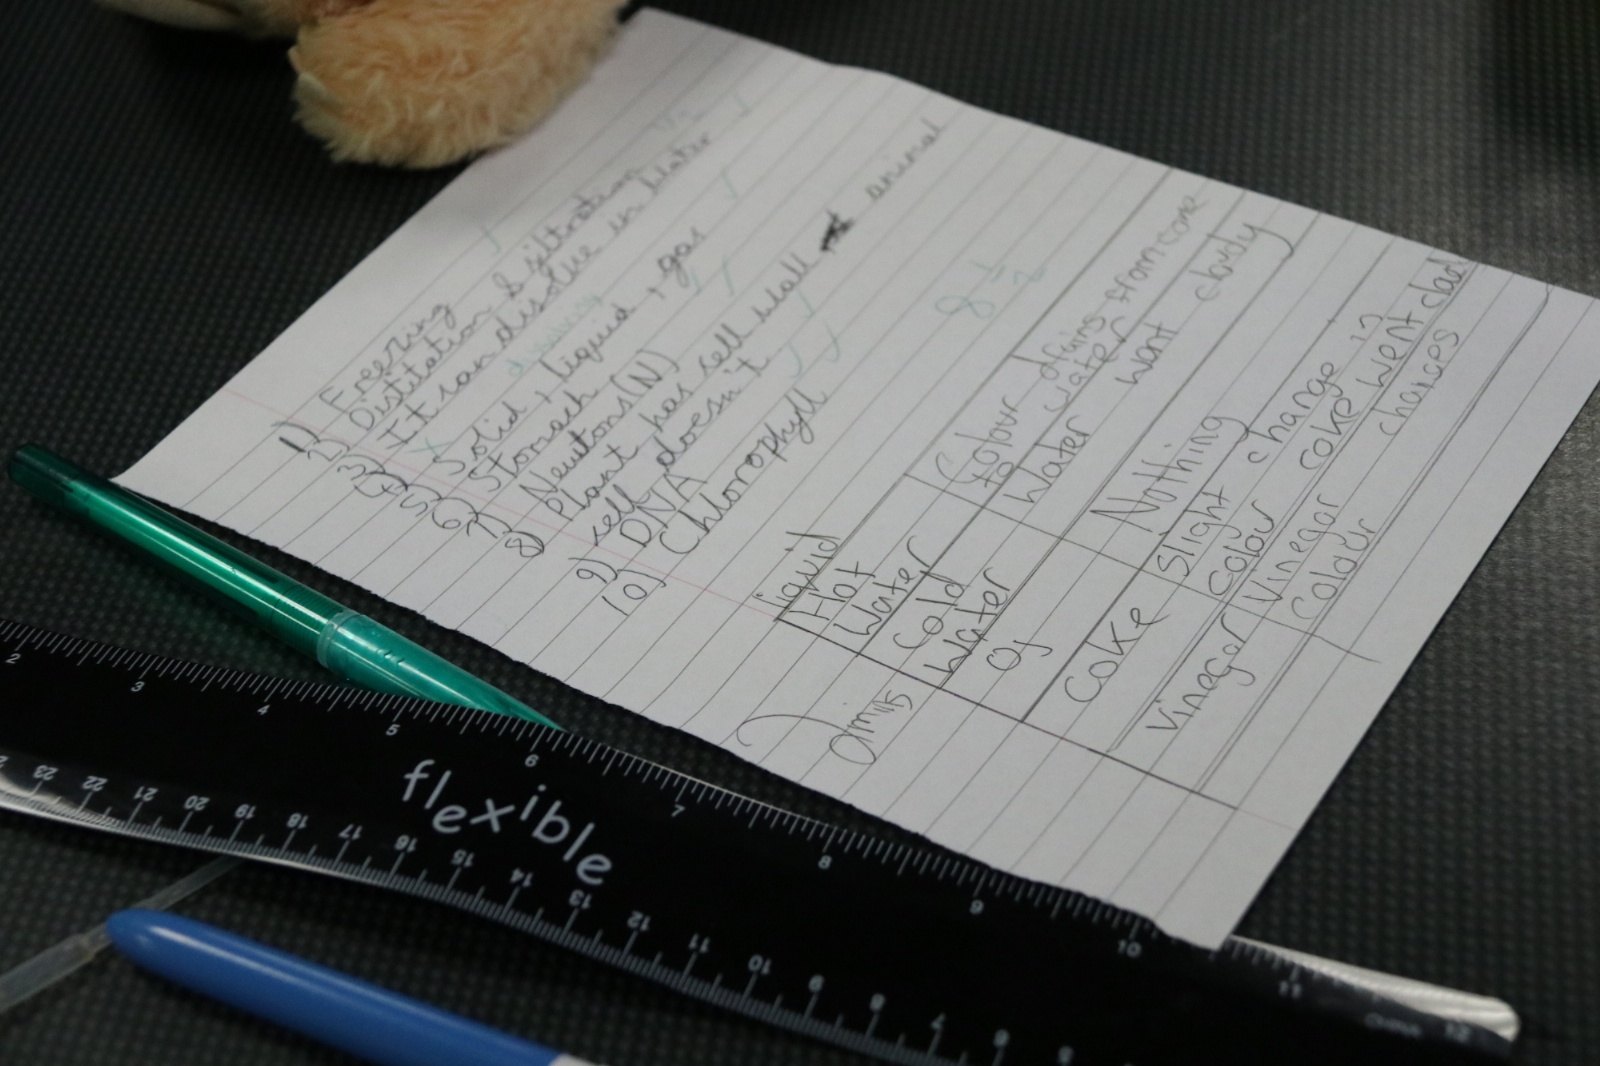 1) Freezing
2) Distitation & filtration
3) It can dissolve in water
dissolving
4) Solid, liquid, gas
5) Stomach
6) Newtons(N)
7) Plant has sell wall animal
sell doesn't
8)
9) DNA
10) Chlorophyll
8 1/2
liquid
Hot Water
Colour drains from come to water
cold Water
Water went cloudy
Oj
Nothing
Coke
Slight change in colour coke went clad
Vinegar
Vinegar changes coladr
2mils
flexible
2 3 4 5 6 7 8 9 10 11 12
23 22 21 20 19 18 17 16 15 14 13 12 11 10 9 8 7 6 5
CHINA